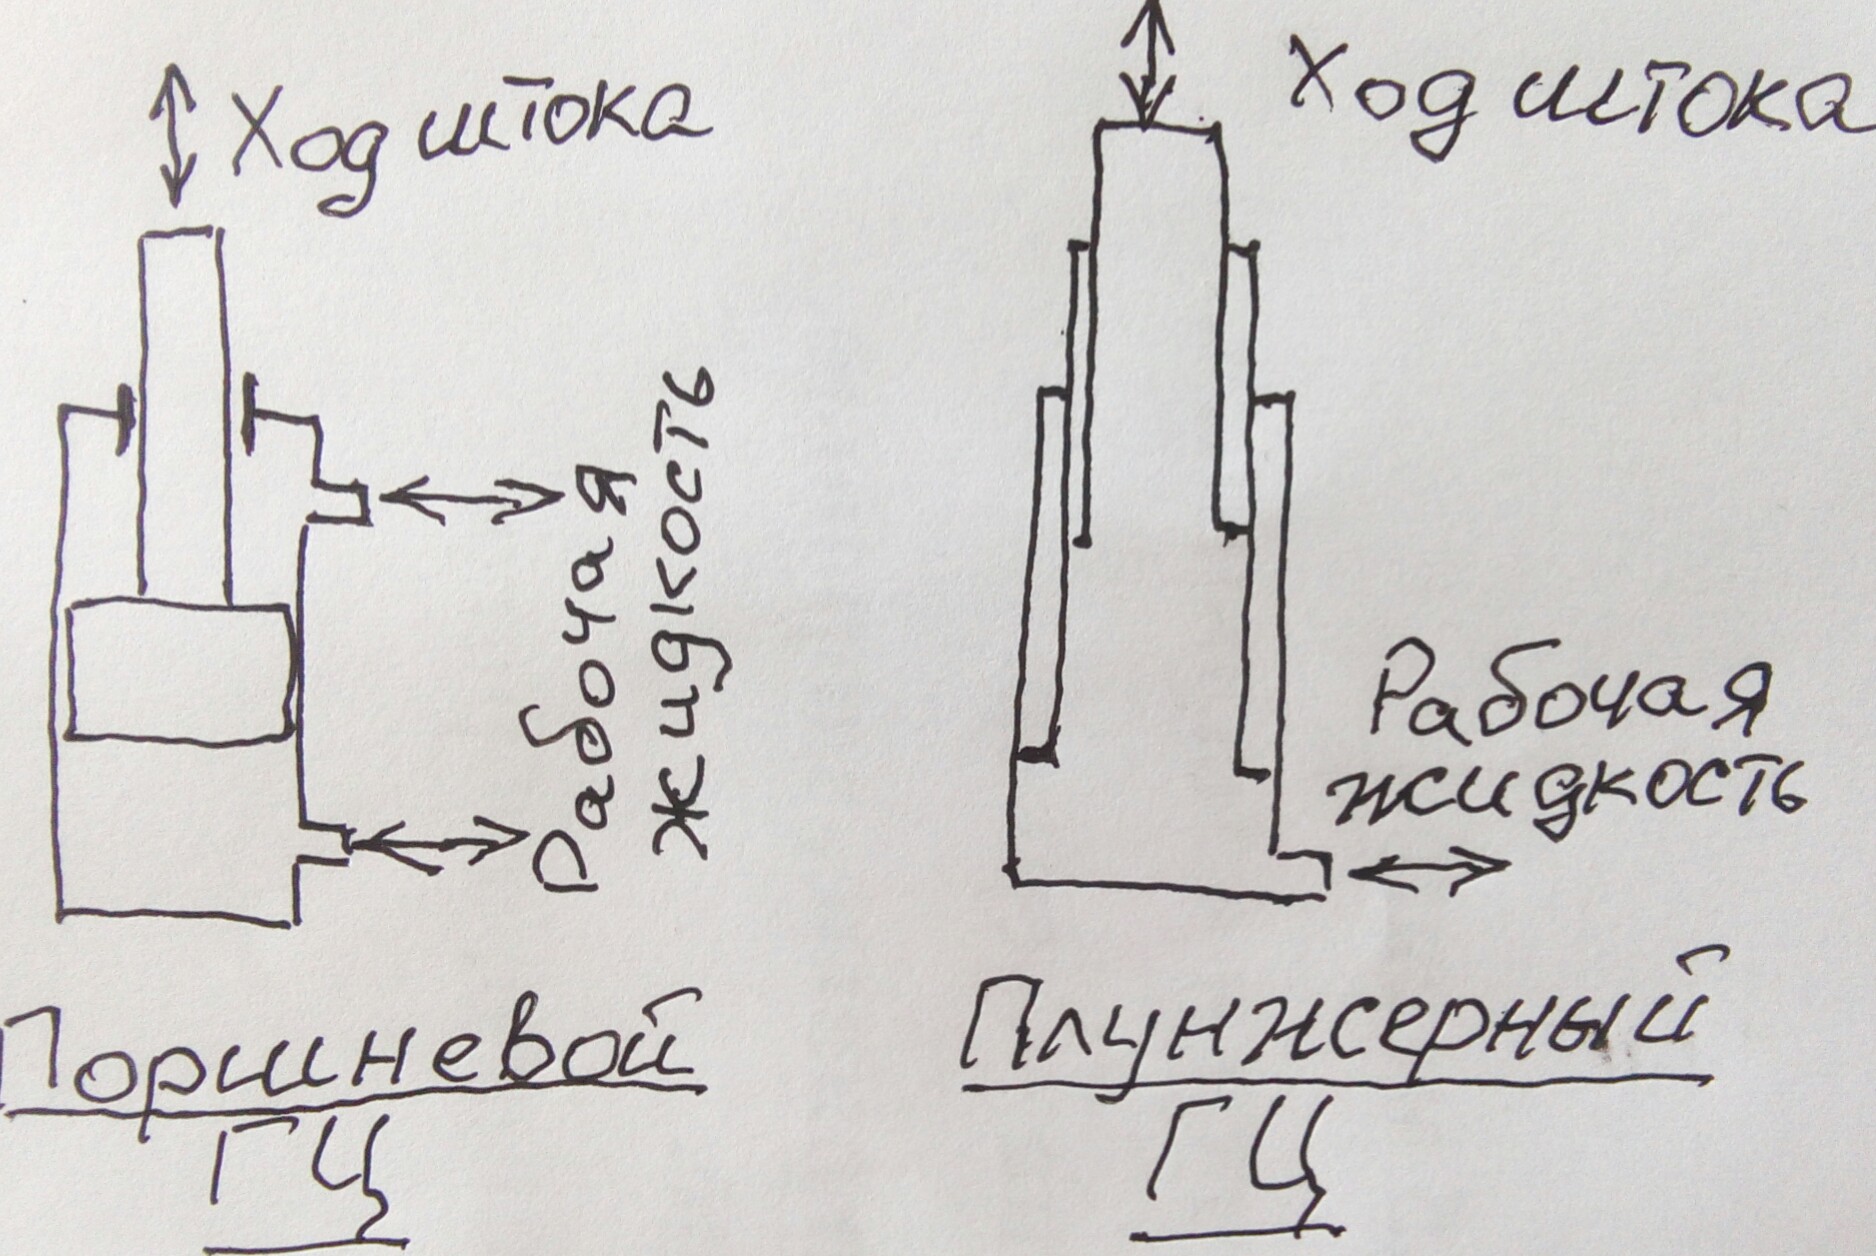 Ход штока
Рабочая
жидкость
Поршневой
ГЦ
Ход штока
Рабочая
жидкость
Плунжерный
ГЦ